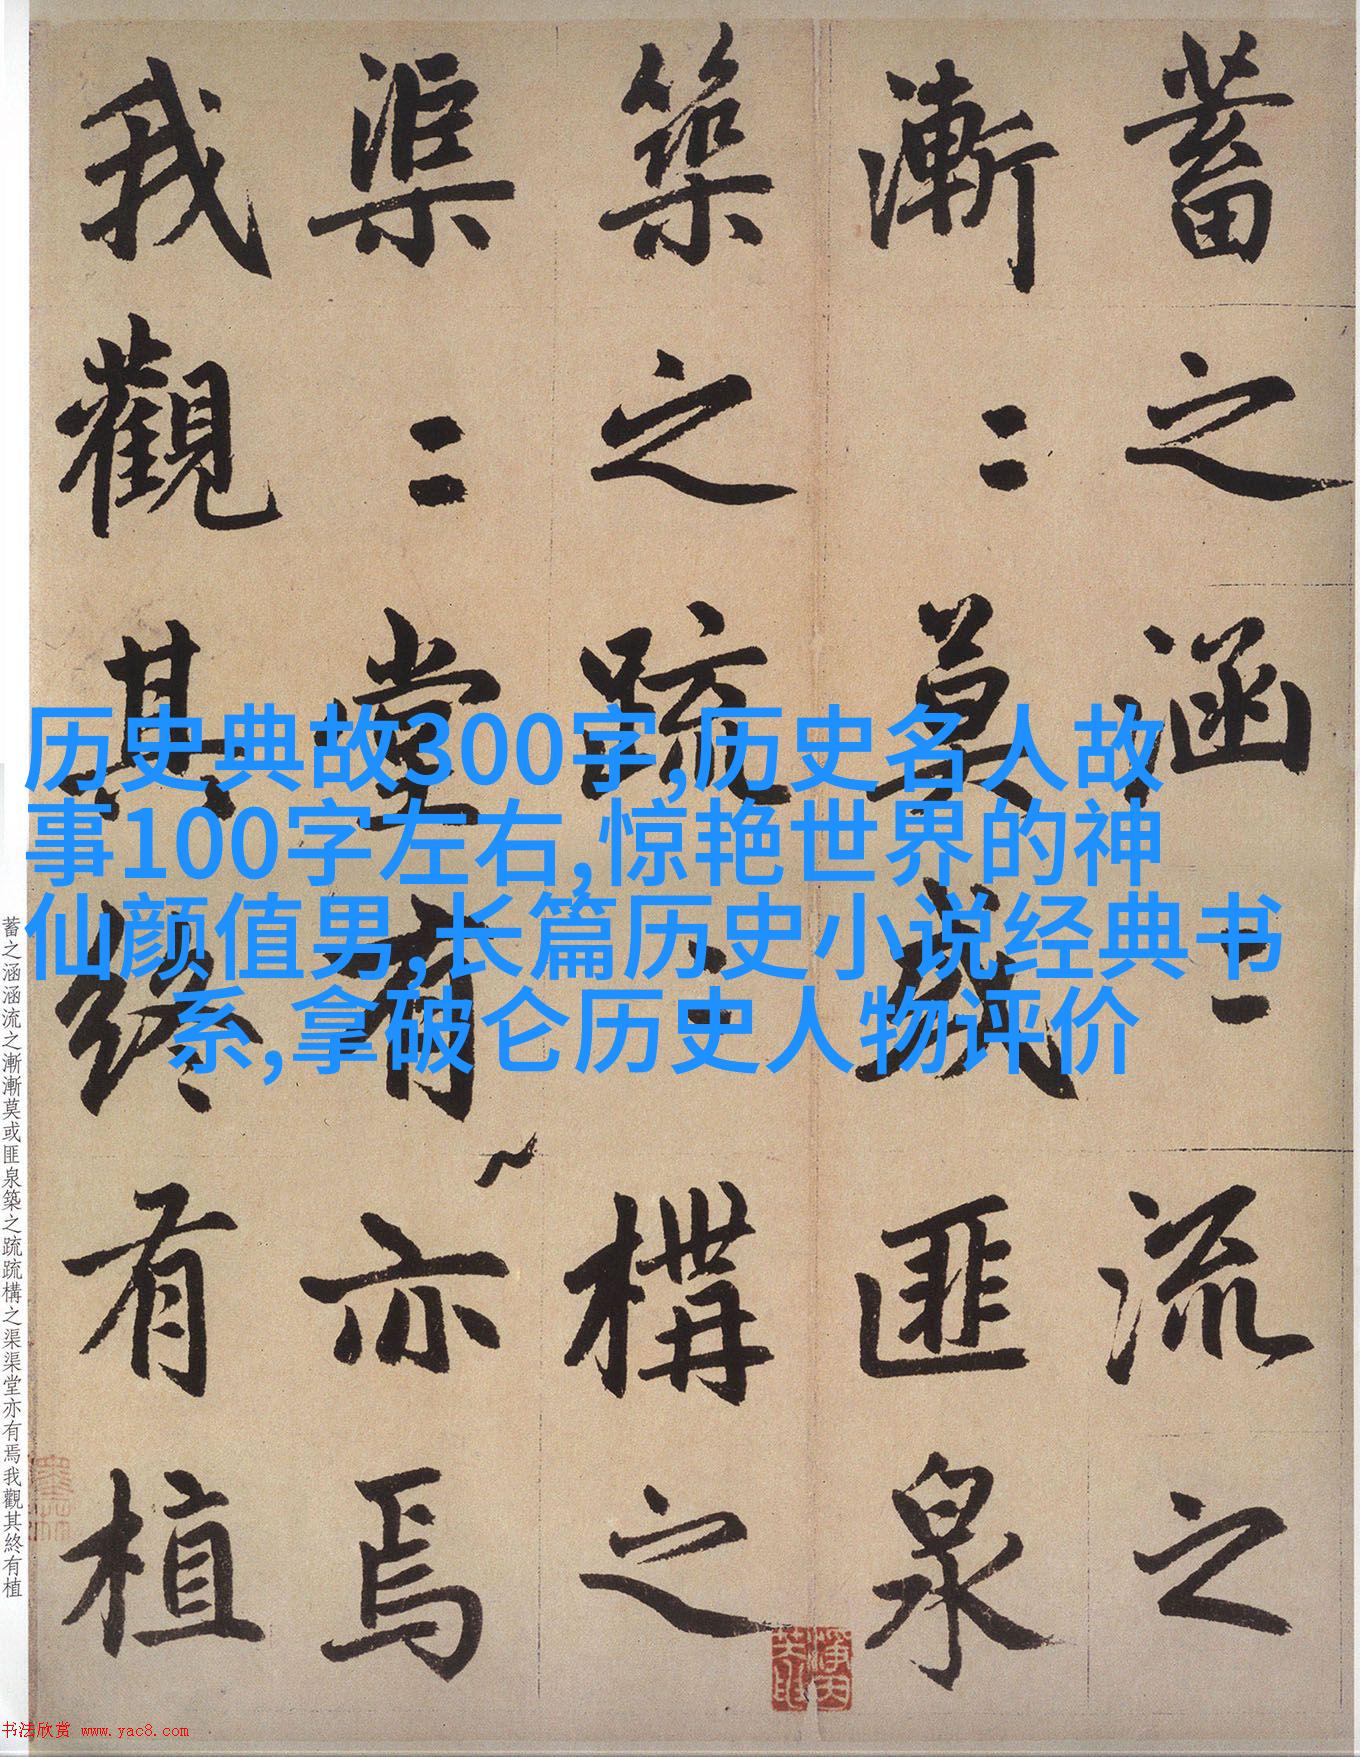 蓄之涵〻流之
漸〻莫或匪泉
築之疏〻構之
渠〻堂有亦焉
我觀其終有植
历史典故300字,历史名人故
事100字左右,惊艳世界的神
仙颜值男,长篇历史小说经典书
系,拿破仑历史人物评价
蓄之涵涵流之漸漸莫或匪泉築之疏疏構之渠渠堂亦有焉我觀其終有植
书法欣赏 www.yac8.com